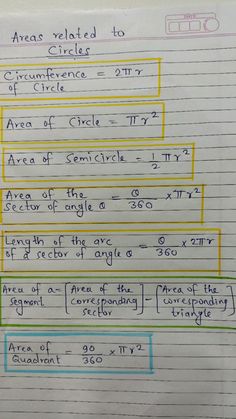 Areas related to
Circles
Circumference = 2πr
of Circle
Area of Circle = πr²
Area of Semicircle - 1/2 πr²
Area of the
sector of angle θ = θ/360 × πr²
Length of the arc
of a sector of angle θ = θ/360 × 2πr
Area of a = [Area of the corresponding sector] - [Area of the corresponding triangle]
segment
Area of
Quadrant = 90/360 × πr²